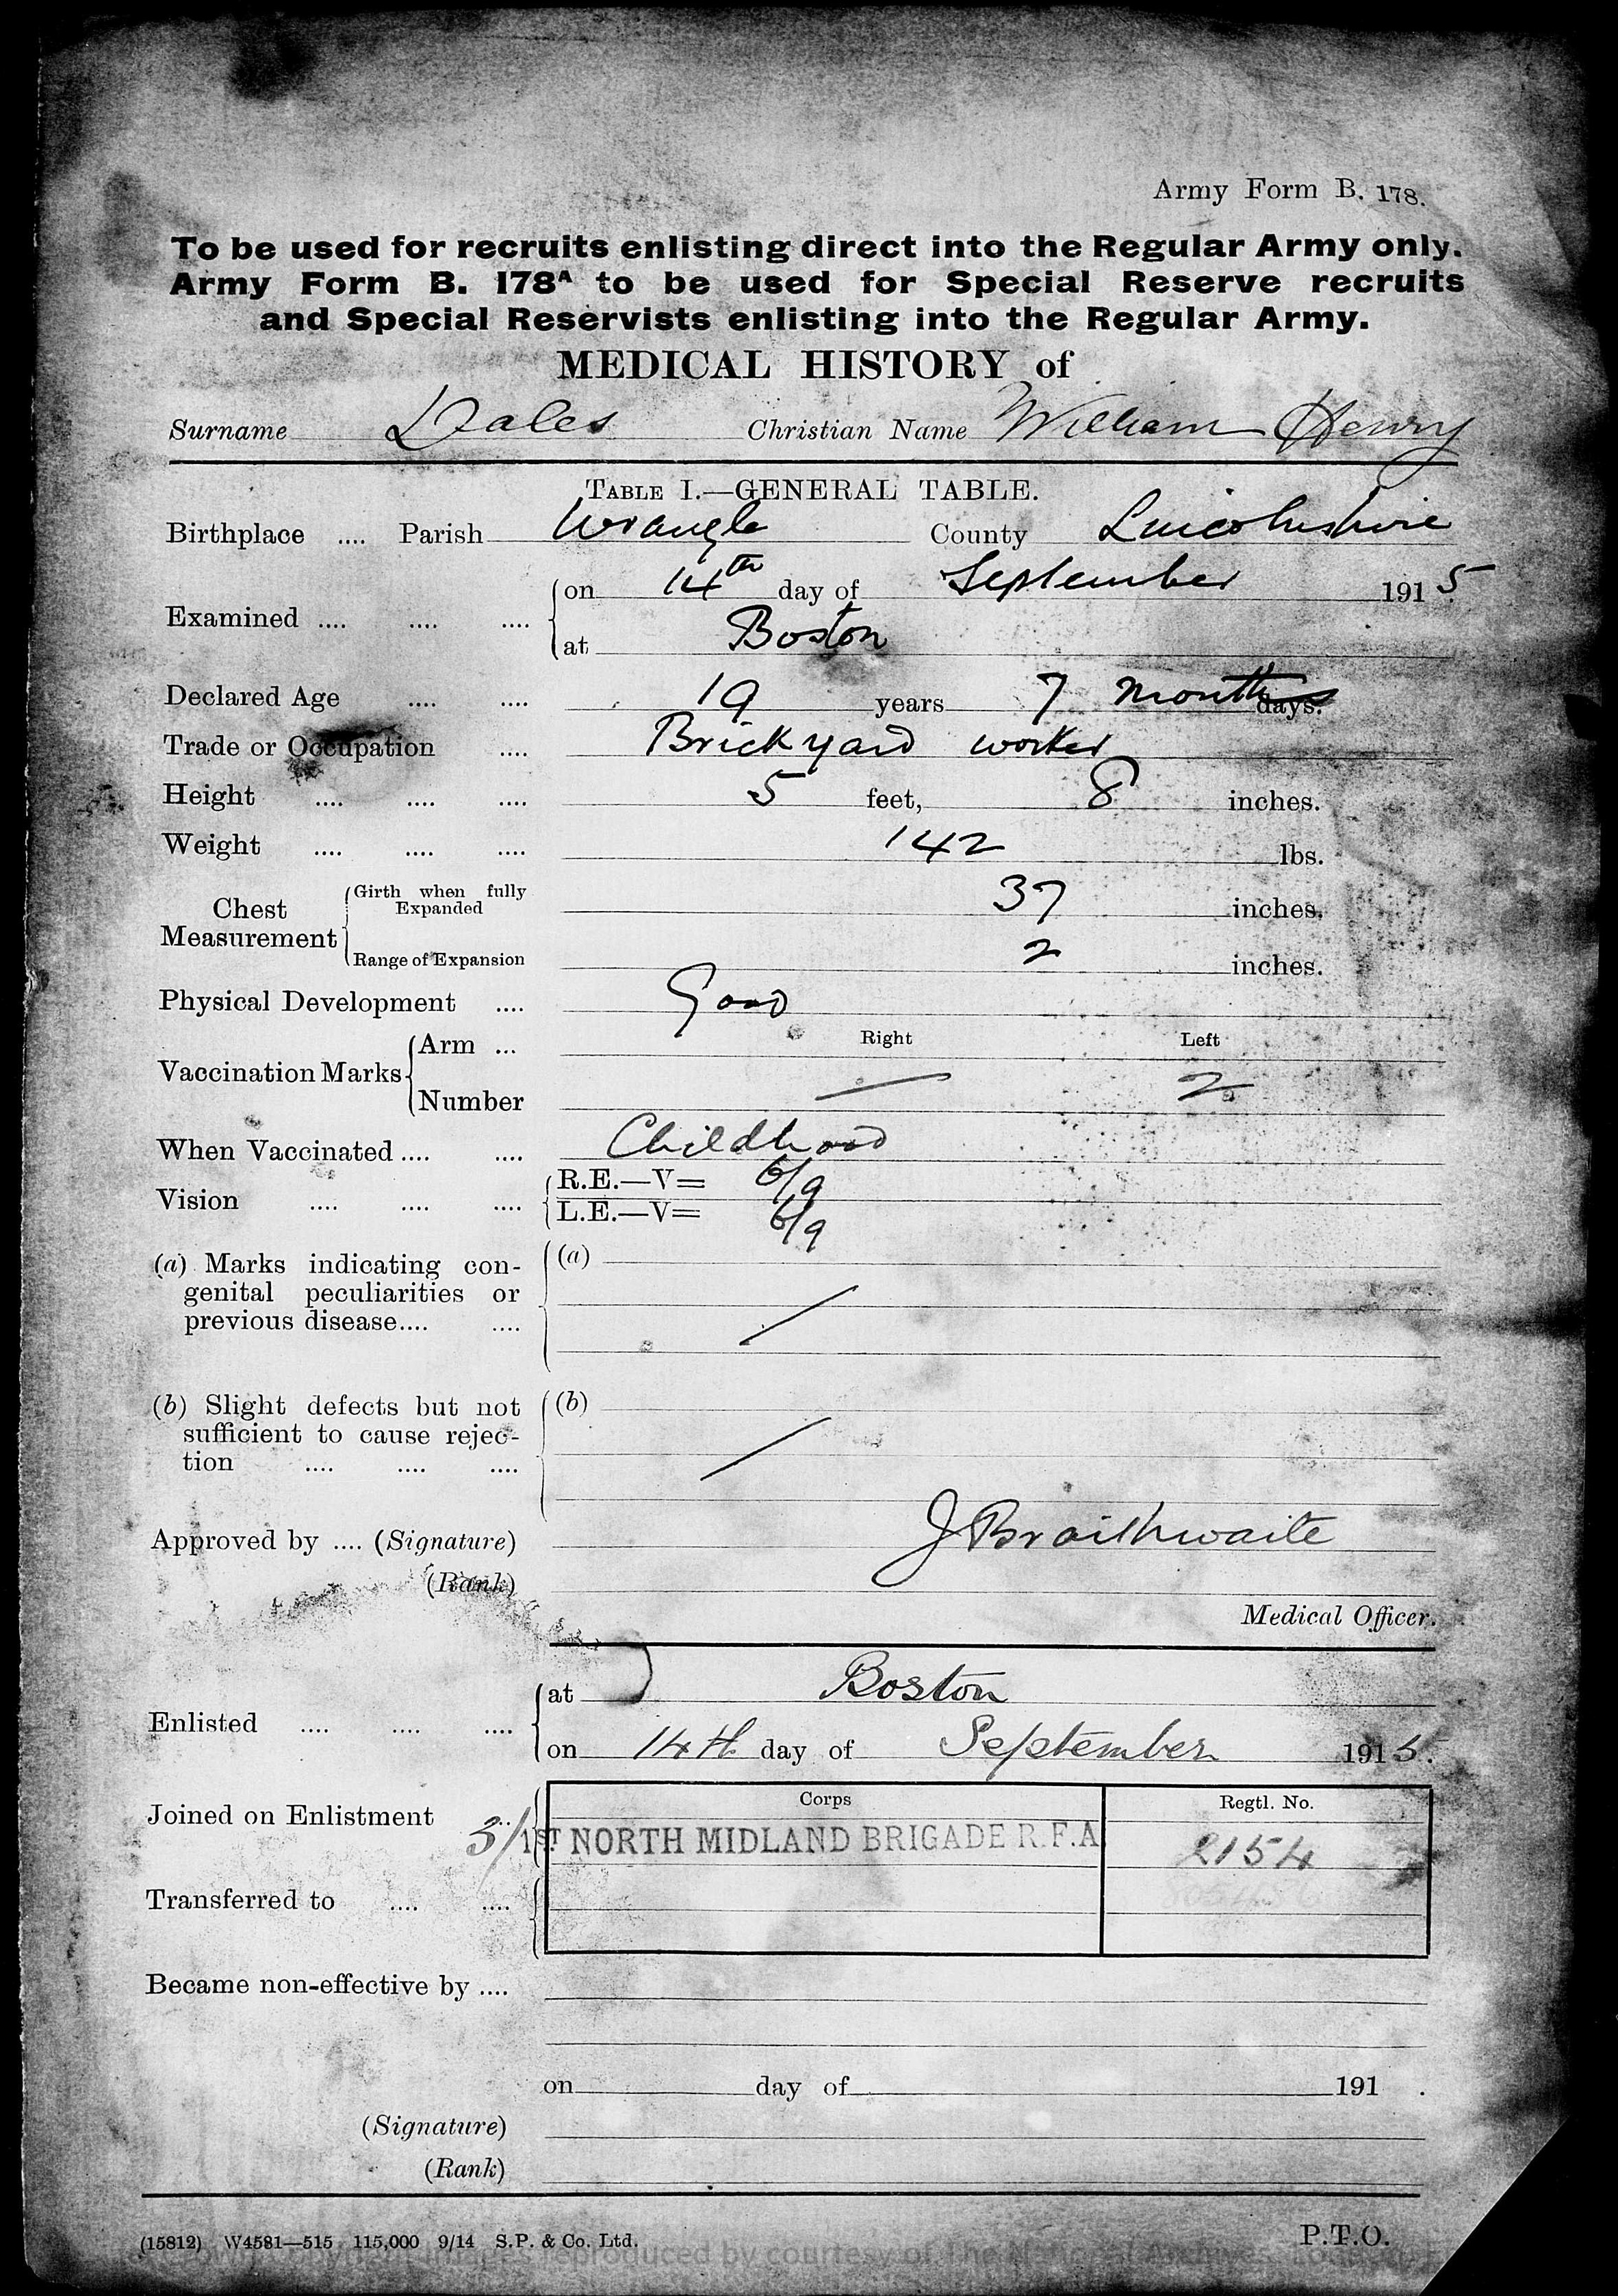 Army Form B. 178.
To be used for recruits enlisting direct into the Regular Army only.
Army Form B. 178A to be used for Special Reserve recruits
and Special Reservists enlisting into the Regular Army.
MEDICAL HISTORY of
Surname Dales Christian Name William Henry
TABLE I.—GENERAL TABLE.
Birthplace .... Parish Wrangle County Lincolnshire
Examined .... .... .... on 14th day of September 1915
at Boston
Declared Age .... .... 19 years 7 months days.
Trade or Occupation .... Brickyard worker
Height .... .... .... 5 feet, 8 inches.
Weight .... .... .... 142 lbs.
Chest Measurement Girth when fully Expanded 37 inches.
Range of Expansion 2 inches.
Physical Development .... Good
Vaccination Marks Arm ... Right Left
Number — 2
When Vaccinated .... .... Childhood
Vision .... .... .... R.E.—V= 6/9
L.E.—V= 6/9
(a) Marks indicating con- (a)
genital peculiarities or
previous disease.... .... /
(b) Slight defects but not (b)
sufficient to cause rejec-
tion .... .... .... /
Approved by .... (Signature) J Braithwaite
(Rank)
Medical Officer.
Enlisted .... .... .... at Boston
on 14th day of September 1915.
Corps Regtl. No.
Joined on Enlistment ... 3/1ST NORTH MIDLAND BRIGADE R.F.A. 2154
Transferred to .... ....
Became non-effective by ....
on day of 191 .
(Signature)
(Rank)
(15812) W4581—515 115,000 9/14 S.P. & Co. Ltd. P.T.O.
images reproduced by courtesy of The National Archives, London